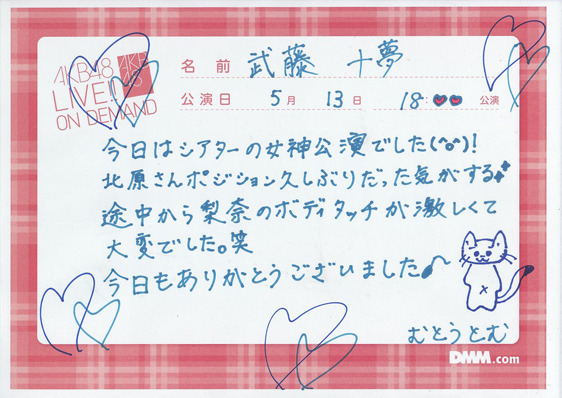 AKB48
LIVE!!
ON DEMAND
AKB
48
名前 武藤 十夢
公演日 5月 13日 18:00 公演
今日はシアターの女神公演でした(^o^)!
北原さんポジション久しぶりだった気がする
途中から梨奈のボディタッチが激しくて
大変でした。笑
今日もありがとうございました♪
むとうとむ
DMM.com